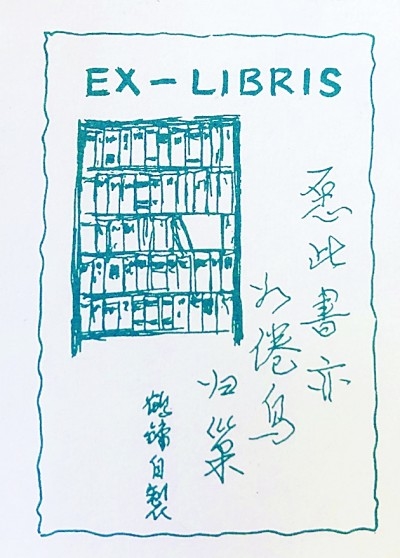 EX-LIBRIS
愿此書亦
如倦鳥
归巢
自製